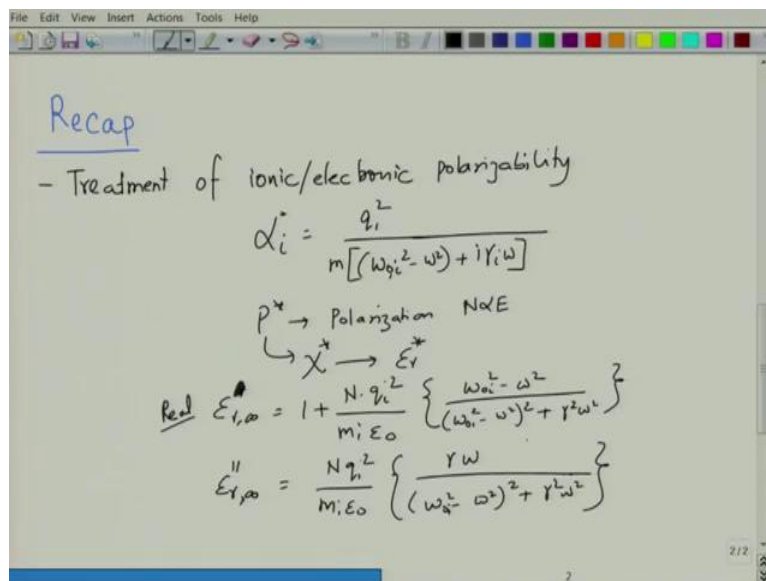 File Edit View Insert Actions Tools Help
Recap
- Treatment of ionic/electronic polarizability
αi* = qi² / m[(ω0i² - ω²) + iγiω]
P* → Polarization NαE
↳ χ* → εr*
Real εr,∞' = 1 + N·qi² / mi ε0 { ω0i² - ω² / (ω0i² - ω²)² + γ²ω² }
εr,∞'' = Nqi² / miε0 { γω / (ω0i² - ω²)² + γ²ω² }
2/2
2